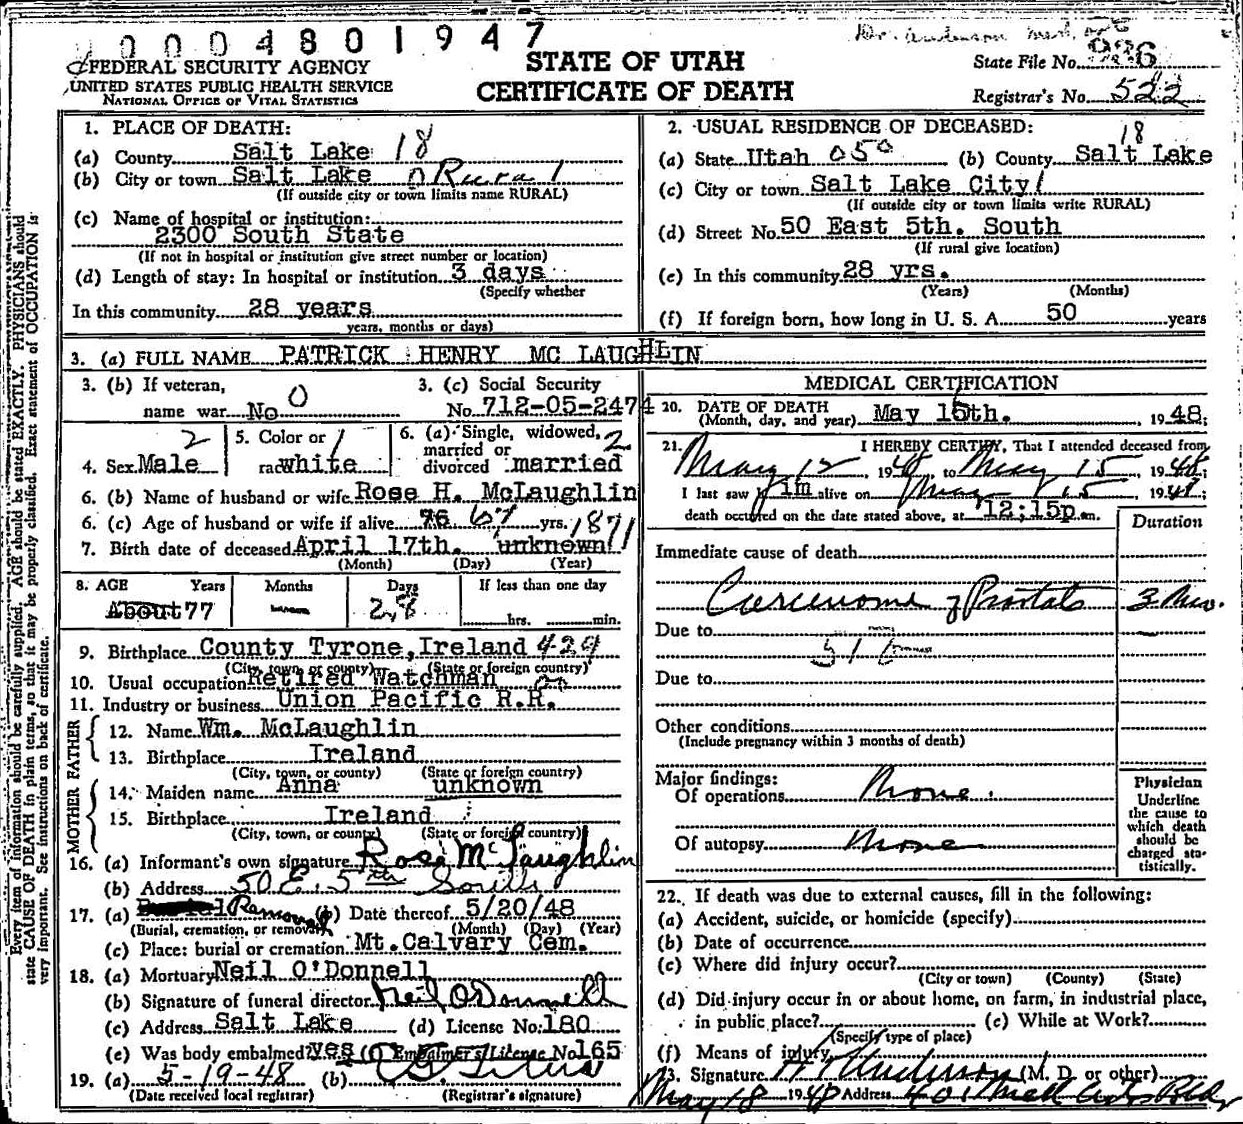 0 0 0 4 8 0 1 9 4 7
Dr. Anderson Med.
FEDERAL SECURITY AGENCY
UNITED STATES PUBLIC HEALTH SERVICE
NATIONAL OFFICE OF VITAL STATISTICS
STATE OF UTAH
CERTIFICATE OF DEATH
State File No. 936
Registrar's No. 522
Every item of information should be carefully supplied. AGE should be stated EXACTLY. PHYSICIANS should
state CAUSE OF DEATH in plain terms, so that it may be properly classified. Exact statement of OCCUPATION is
very important. See instructions on back of certificate.
1. PLACE OF DEATH:
(a) County Salt Lake 18
(b) City or town Salt Lake 0 Rural
(If outside city or town limits name RURAL)
(c) Name of hospital or institution:
2300 South State
(If not in hospital or institution give street number or location)
(d) Length of stay: In hospital or institution 3 days
(Specify whether
In this community 28 years
years, months or days)
2. USUAL RESIDENCE OF DECEASED:
18
(a) State Utah 050 (b) County Salt Lake
(c) City or town Salt Lake City 1
(If outside city or town limits write RURAL)
(d) Street No. 50 East 5th. South
(If rural give location)
(e) In this community 28 yrs.
(Years) (Months)
(f) If foreign born, how long in U. S. A. 50 years
3. (a) FULL NAME PATRICK HENRY MC LAUGHLIN
3. (b) If veteran,
name war No 0
3. (c) Social Security
No. 712-05-2474
4. Sex Male 2
5. Color or
race white 1
6. (a) Single, widowed,
married or
divorced married 2
6. (b) Name of husband or wife Rose H. McLaughlin
6. (c) Age of husband or wife if alive 76 67 yrs. 1871
7. Birth date of deceased April 17th. unknown
(Month) (Day) (Year)
8. AGE Years Months Days If less than one day
About 77 — 28 hrs. min.
9. Birthplace County Tyrone, Ireland 429
(City, town, or county) (State or foreign country)
10. Usual occupation Retired Watchman
11. Industry or business Union Pacific R.R.
FATHER
12. Name Wm. McLaughlin
13. Birthplace Ireland
(City, town, or county) (State or foreign country)
MOTHER
14. Maiden name Anna unknown
15. Birthplace Ireland
(City, town, or county) (State or foreign country)
16. (a) Informant's own signature Rose McLaughlin
(b) Address 50 E. 5th South
17. (a) Burial Removal (b) Date thereof 5/20/48
(Burial, cremation, or removal) (Month) (Day) (Year)
(c) Place: burial or cremation Mt. Calvary Cem.
18. (a) Mortuary Neil O'Donnell
(b) Signature of funeral director Neil O'Donnell
(c) Address Salt Lake (d) License No. 180
(e) Was body embalmed? yes (f) Embalmer's License No. 165
19. (a) 5-19-48 (b)
(Date received local registrar) (Registrar's signature)
MEDICAL CERTIFICATION
20. DATE OF DEATH
(Month, day, and year) May 15th. , 1948;
21. I HEREBY CERTIFY, That I attended deceased from
May 12, 1948, to May 15, 1948;
I last saw him alive on May 15, 1948;
death occurred on the date stated above, at 12:15p m.
Duration
Immediate cause of death
Carcinoma of Prostate 3 Mo.
Due to
51
Due to
Other conditions
(Include pregnancy within 3 months of death)
Major findings:
Of operations None.
Of autopsy None
Physician
Underline
the cause to
which death
should be
charged sta-
tistically.
22. If death was due to external causes, fill in the following:
(a) Accident, suicide, or homicide (specify)
(b) Date of occurrence
(c) Where did injury occur?
(City or town) (County) (State)
(d) Did injury occur in or about home, on farm, in industrial place,
in public place? (e) While at Work?
(Specify type of place)
(f) Means of injury
23. Signature Anderson (M. D. or other)
May 18 1948 Address 401 Med Arts Bldg